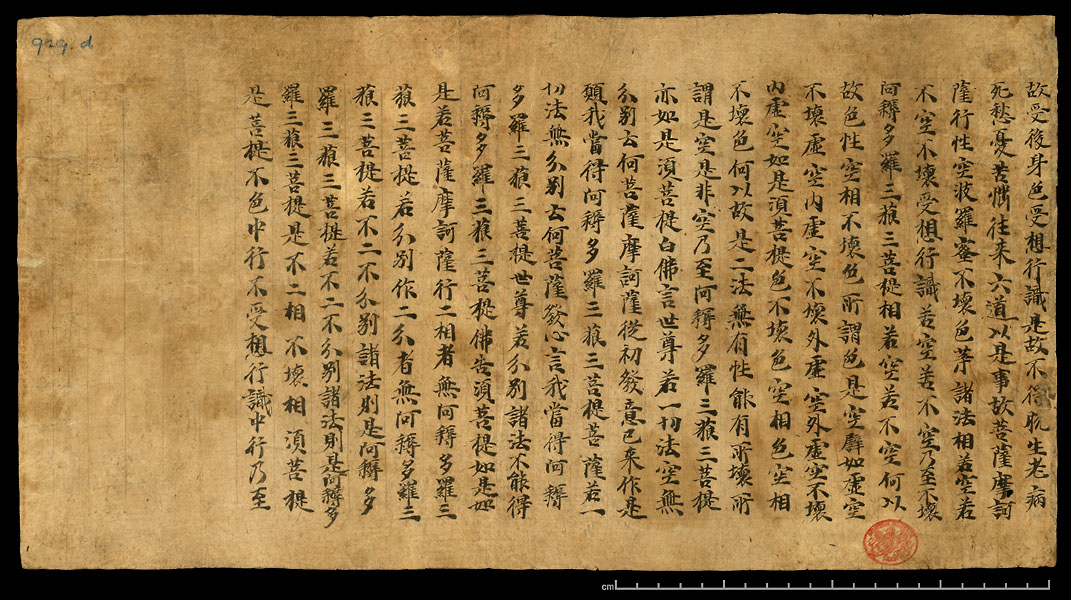 故受後身色受相行識是故不得脫生老病
死愁憂苦惱往来六道以是事故菩薩摩訶
薩行性空波羅蜜不壞色等諸法相若空若
不空不壞受想行識若空若不空乃至不壞
阿耨多羅三藐三菩提相若空若不空何以
故色性空相不壞色所謂色是空譬如虛空
不壞虛空内虛空不壞外虛空外虛空不壞
内虛空如是須菩提色不壞色空相色空相
不壞色何以故是二法無有性能有所壞所
謂是空是非空乃至阿耨多羅三藐三菩提
亦如是須菩提白佛言世尊若一切法空無
分别云何菩薩摩訶薩從初發意已来作是
願我當得阿耨多羅三藐三菩提菩薩若一
切法無分别云何菩薩發心言我當得阿耨
多羅三藐三菩提世尊若分别諸法不能得
阿耨多羅三藐三菩提佛告須菩提如是如
是若菩薩摩訶薩行二相者無阿耨多羅三
藐三菩提若分别作二分者無阿耨多羅三
藐三菩提若不二不分别諸法則是阿耨多
羅三藐三菩提若不二不分别諸法則是阿耨多
羅三藐三菩提是不二相不壞相須菩提
是菩提不色中行不受想行識中行乃至
929.d
cm